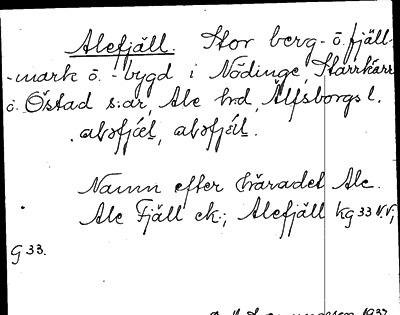 Alefjäll. Stor berg- o. fjäll-
-mark o. -bygd i Nödinge, Starrkärr
o. Östad s:ar, Ale hd, Älfsborgs l.
Namn efter häradet Ale.
Ale Fjäll ek.; Alefjäll kg 33 N.V.;
G 33.